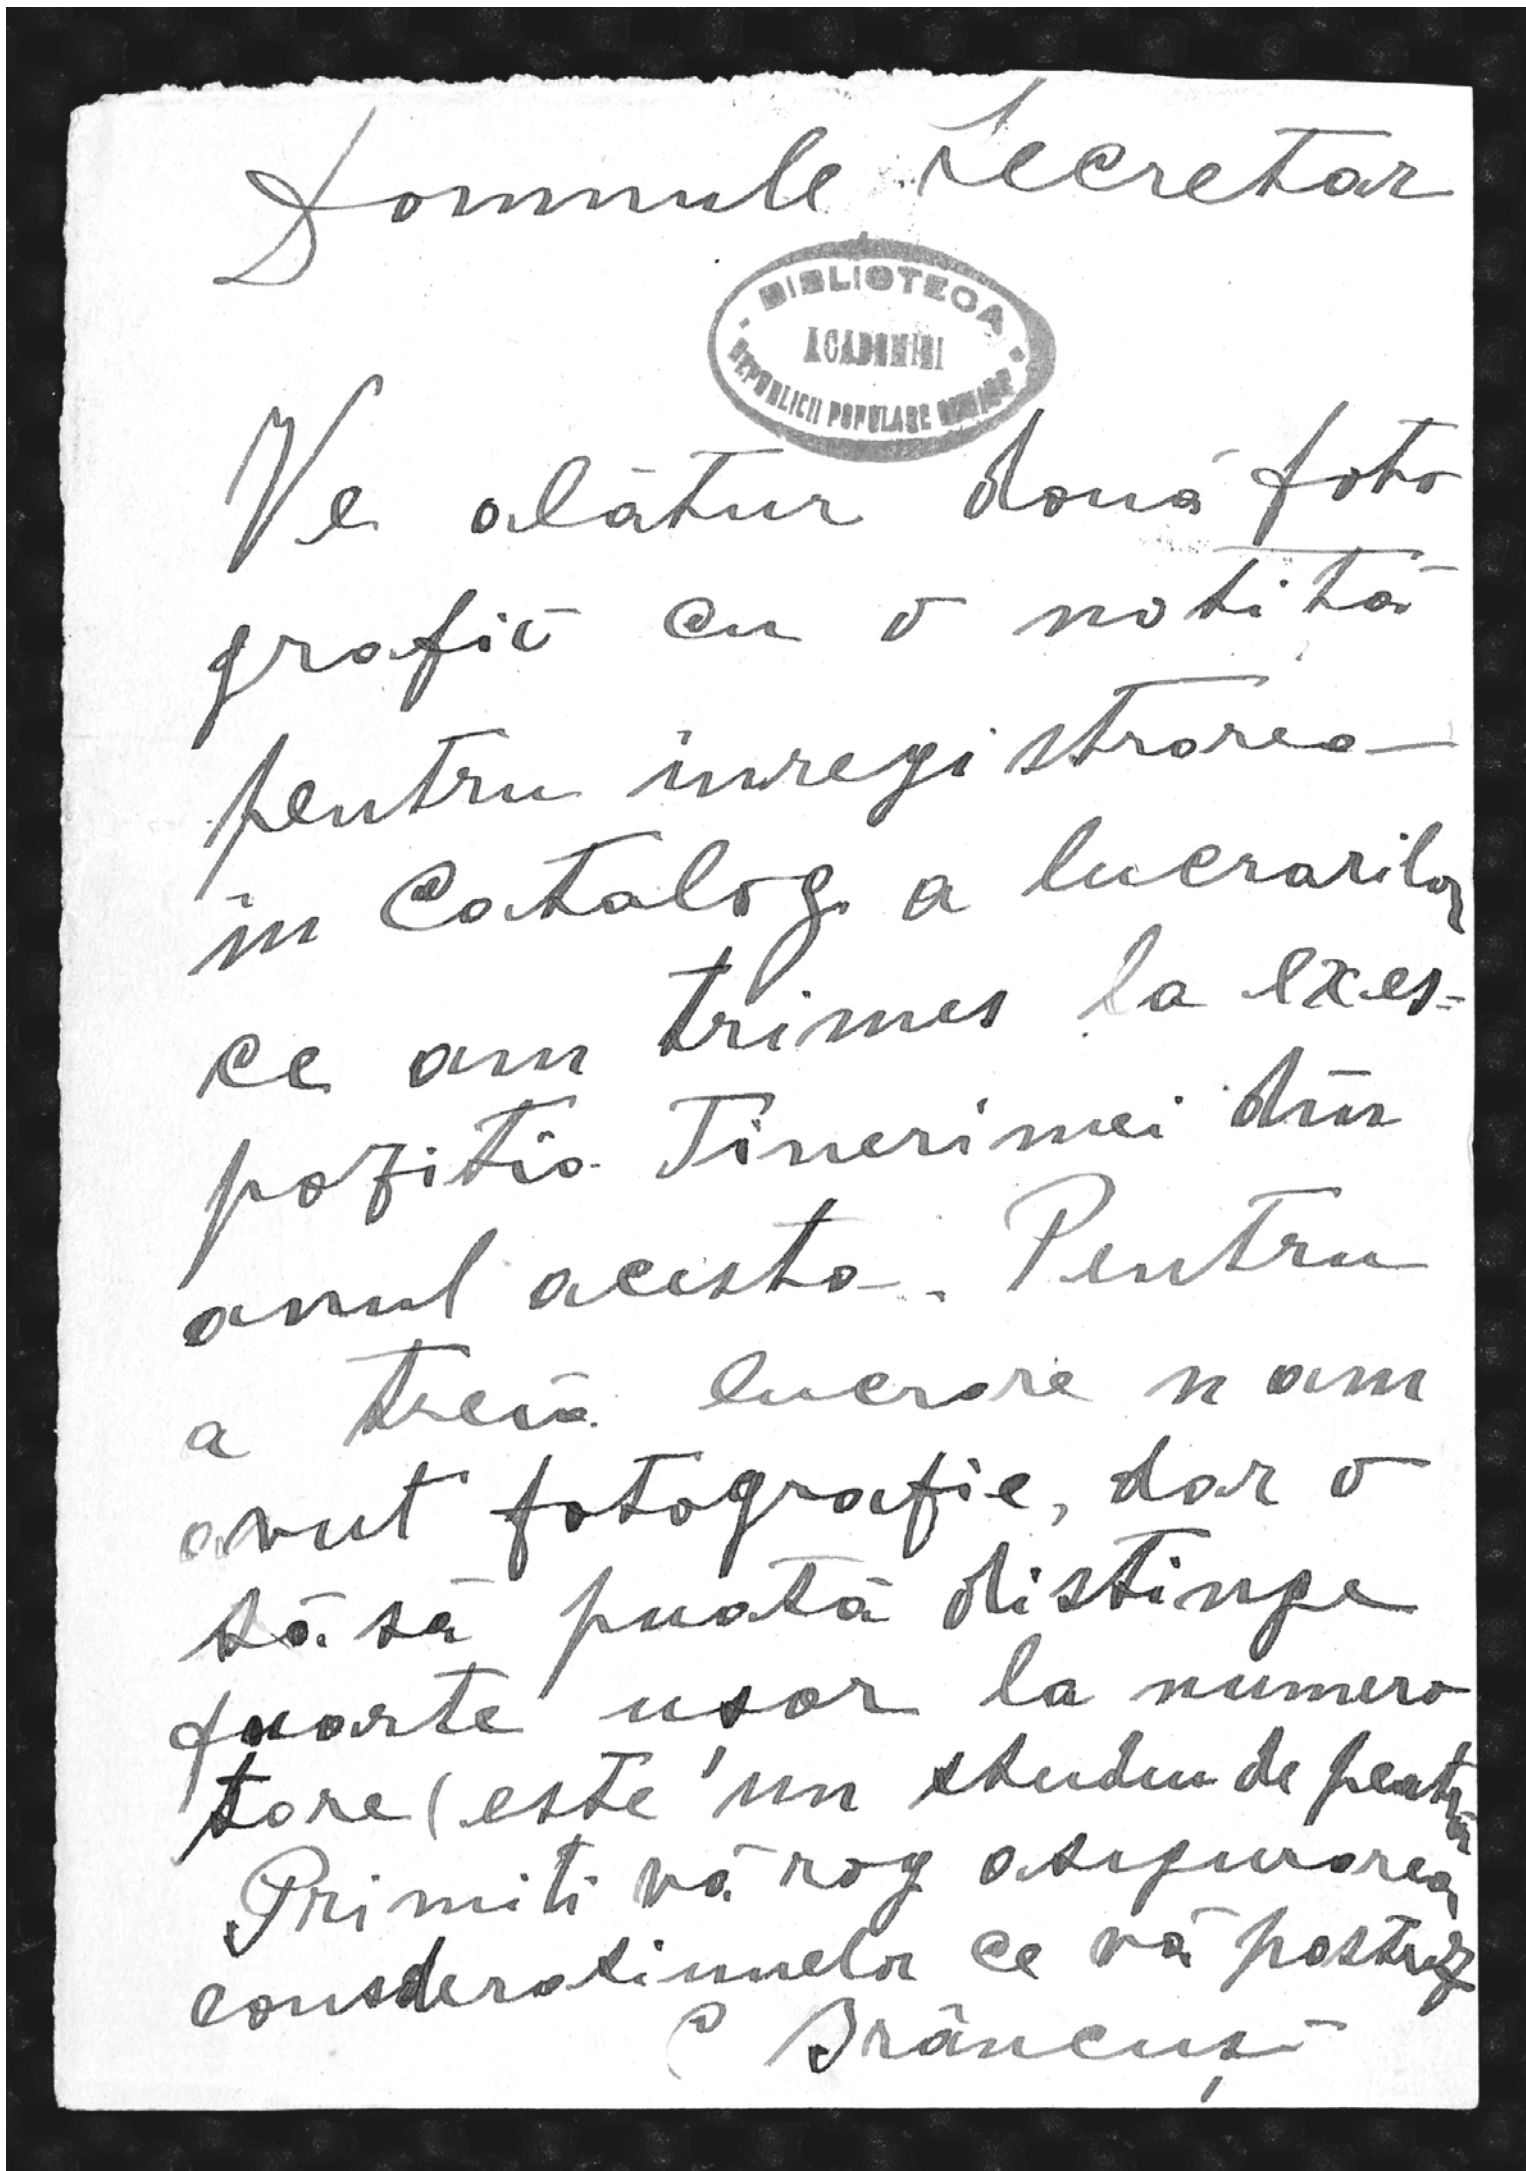 Domnule Secretar
BIBLIOTECA
ACADEMIEI
REPUBLICII POPULARE ROMINE
Ve alătur două foto
grafii cu o notită
pentru inregistrarea
in Catalog a lucrarilor
ce am trimes la exes=
pozitia Tinerimei din
anul acesta. Pentru
a treia lucrare n am
avut fotografie, dar o
să să puată distinge
fuarte ușor la numero
tare (este un studiu de
Primiti vă rog asigurarea
consideratiunelor ce vă postrez
C Brâncuși